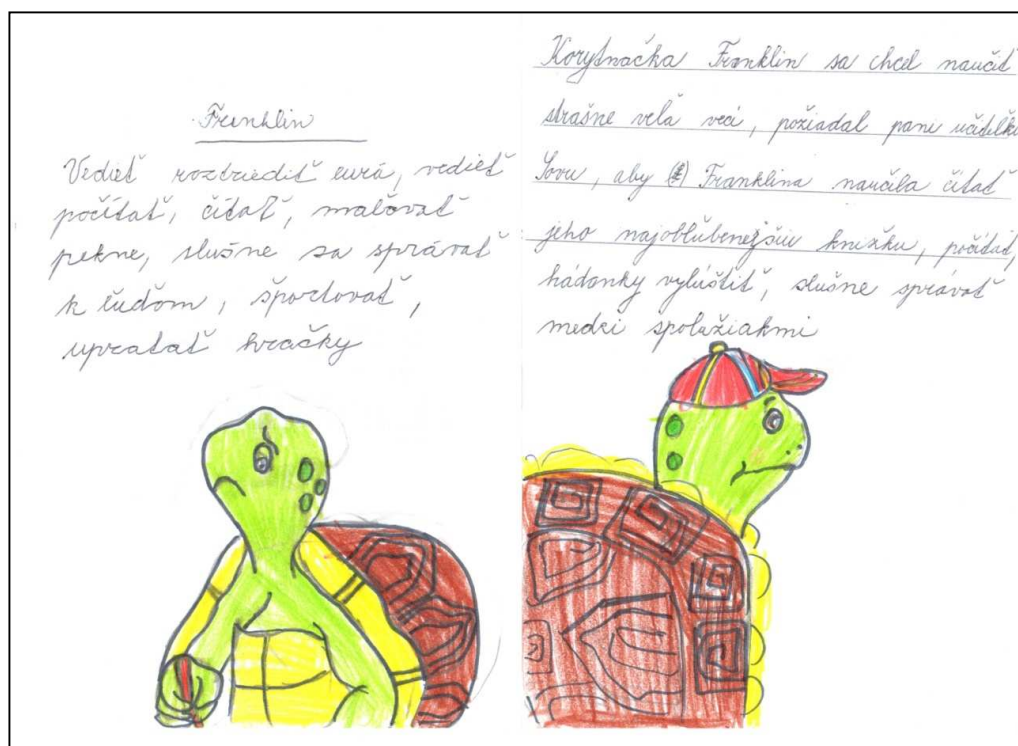 Franklin
Vedieť roztriediť eurá, vedieť
počítať, čítať, maľovať
pekne, slušne sa správať
k ľuďom, športovať,
upratať hračky
Korytnačka Franklin sa chcel naučiť
strašne veľa vecí, požiadal pani učiteľku
Sovu, aby Franklina naučila čítať
jeho najobľúbenejšiu knižku, počítať,
hádanky vylúštiť, slušne správať
medzi spolužiakmi